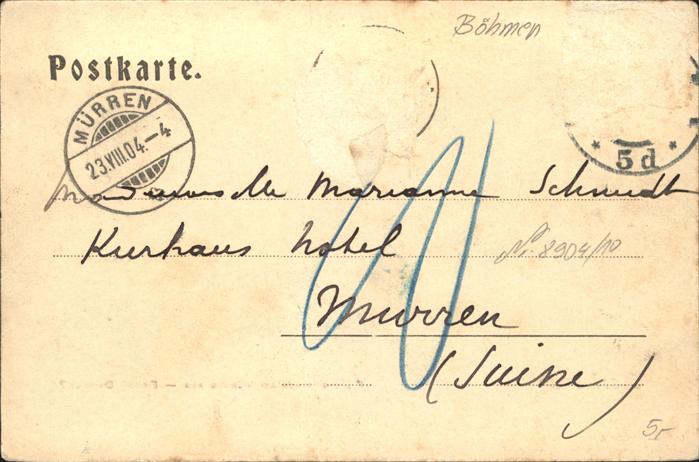 Böhmen
Postkarte.
MÜRREN
23.VIII.04.-4
* 5d *
Mademoiselle Marianne Schmidt
Kurhaus hotel
N. 8904/10
Murren
(Suisse)
5,-